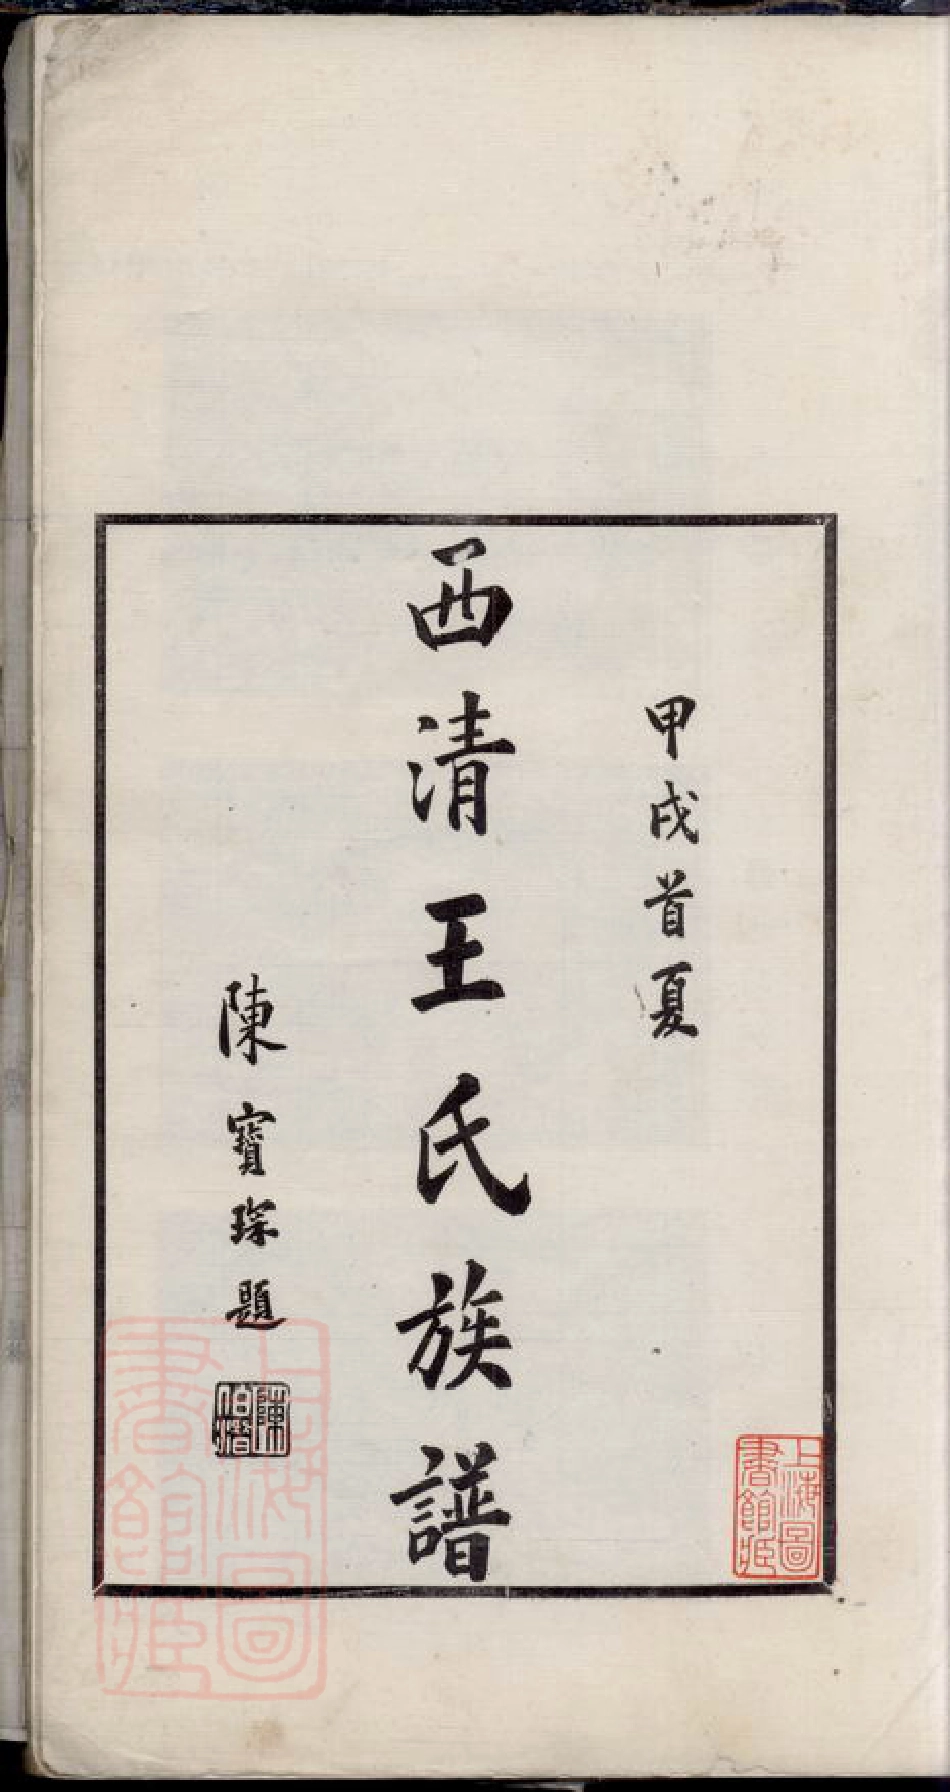 甲戌首夏
西清王氏族譜
陳寶琛題
陳伯潛
上海圖書館藏
上海圖書館藏